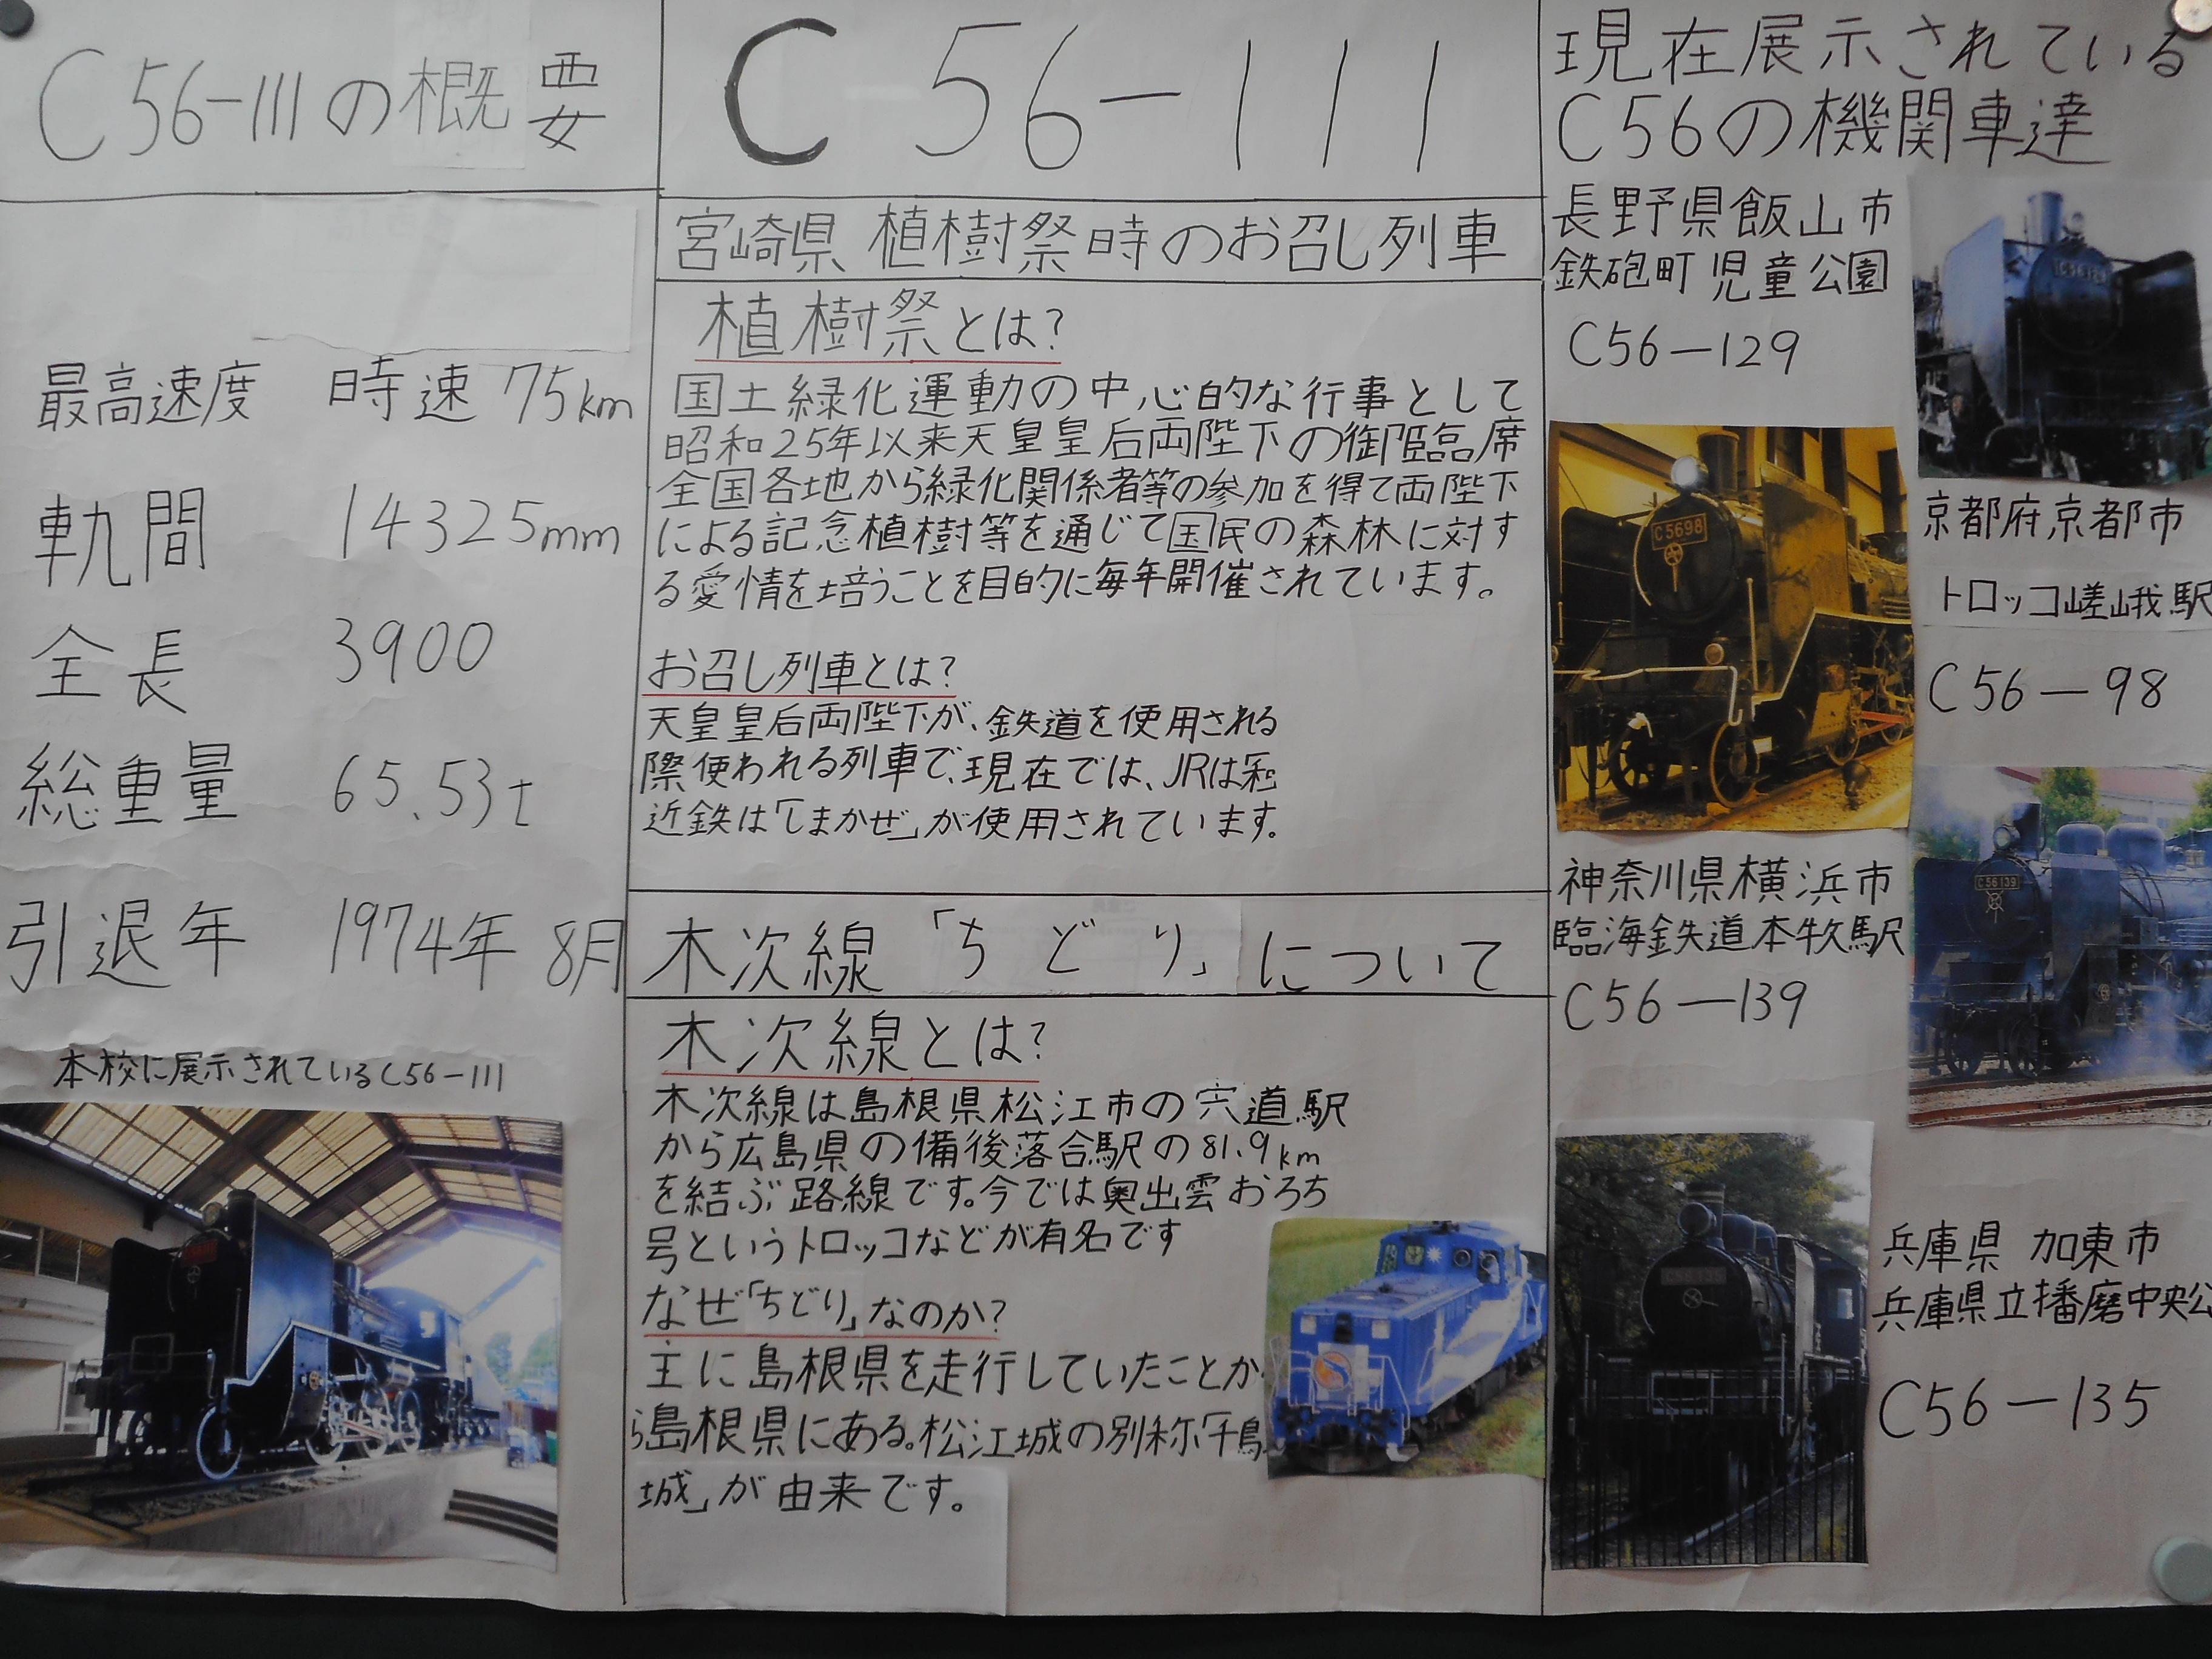 C56-111の概要
最高速度 時速 75km
軌間 14325mm
全長 3900
総重量 65.53t
引退年 1974年 8月
本校に展示されているC56-111
C 56-111
宮崎県 植樹祭時のお召し列車
植樹祭とは?
国土緑化運動の中心的な行事として
昭和25年以来天皇皇后両陛下の御臨席
全国各地から緑化関係者等の参加を得て両陛下
による記念植樹等を通じて国民の森林に対す
る愛情を培うことを目的に毎年開催されています。
お召し列車とは?
天皇皇后両陛下が、鉄道を使用される
際使われる列車で、現在では、JRは
近鉄は「しまかぜ」が使用されています。
木次線「ちどり」について
木次線とは?
木次線は島根県松江市の宍道駅
から広島県の備後落合駅の81.9km
を結ぶ路線です。今では奥出雲おろち
号というトロッコなどが有名です
なぜ「ちどり」なのか?
主に島根県を走行していたことか
ら島根県にある。松江城の別称「千鳥
城」が由来です。
現在展示されている
C56の機関車達
長野県飯山市
鉄砲町児童公園
C56-129
C5698
京都府京都市
トロッコ嵯峨駅
C56-98
神奈川県横浜市
臨海鉄道本牧駅
C56-139
C56139
兵庫県 加東市
兵庫県立播磨中央公
C56-135